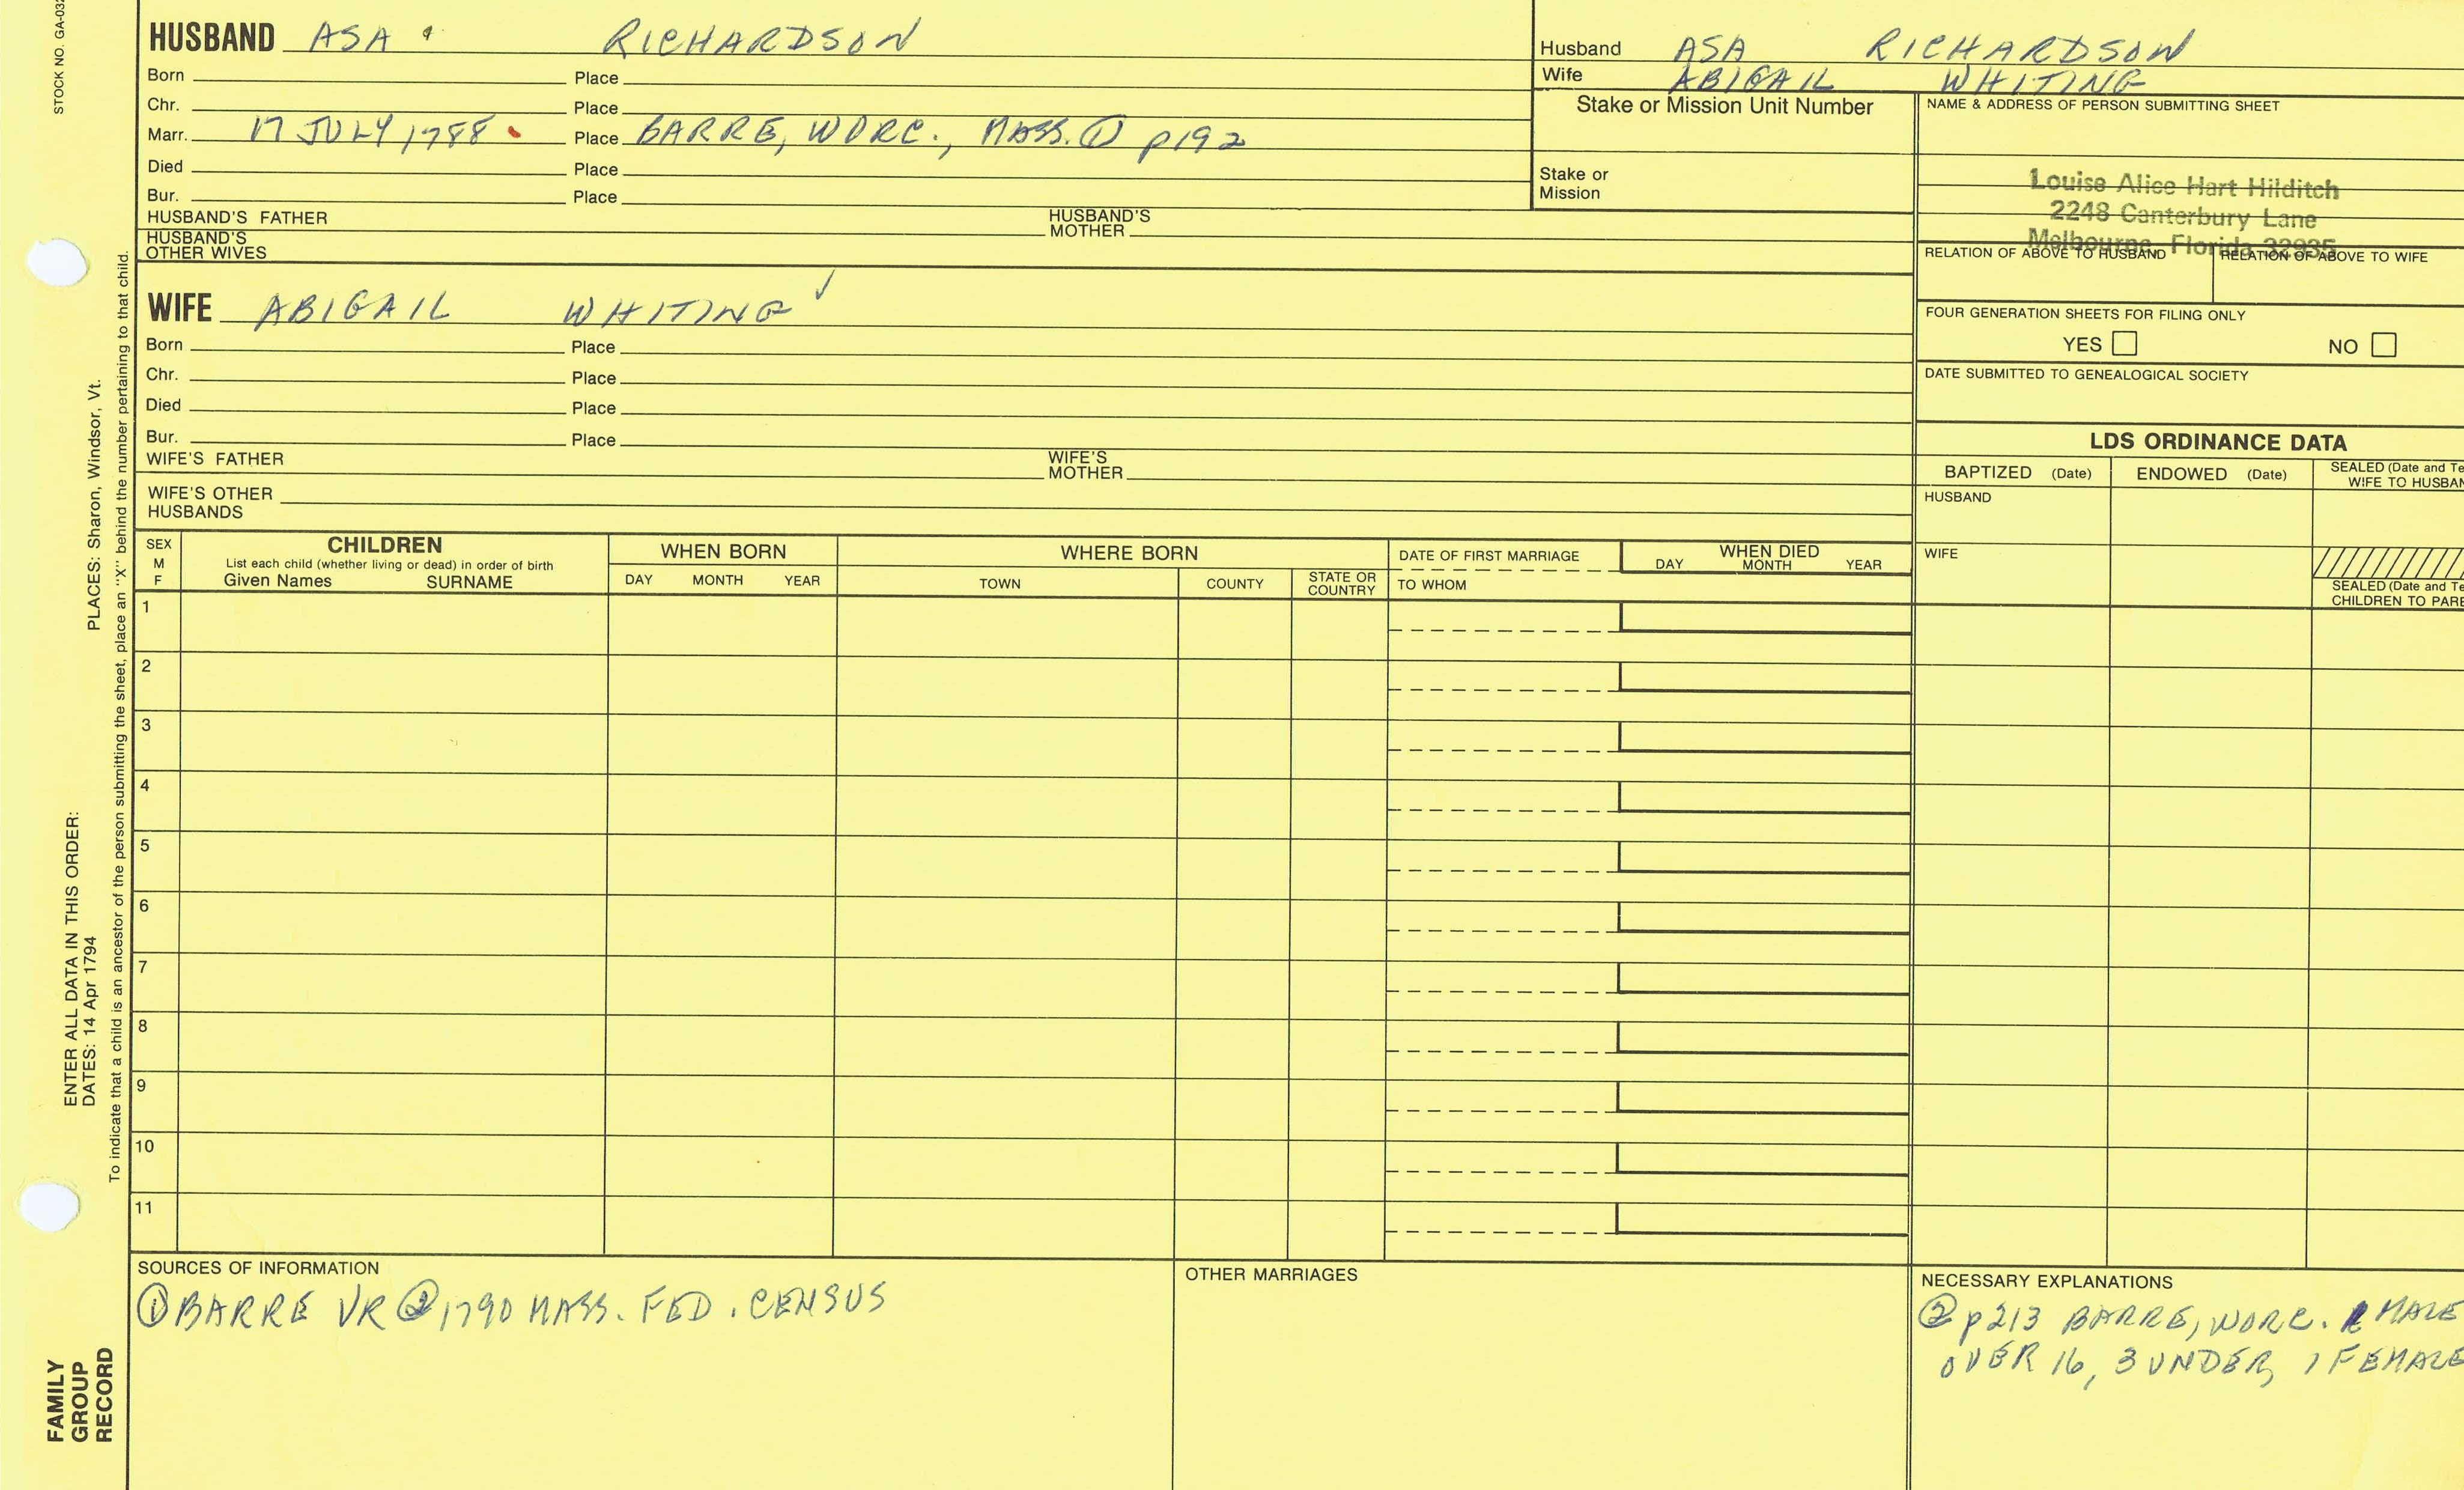 STOCK NO. GA-032
HUSBAND ASA RICHARDSON
Born Place
Chr. Place
Marr. 17 JULY 1788 Place BARRE, WORC., MASS. ① p192
Died Place
Bur. Place
HUSBAND'S FATHER HUSBAND'S MOTHER
HUSBAND'S OTHER WIVES
WIFE ABIGAIL WHITING ✓
Born Place
Chr. Place
Died Place
Bur. Place
WIFE'S FATHER WIFE'S MOTHER
WIFE'S OTHER HUSBANDS
Husband ASA RICHARDSON
Wife ABIGAIL WHITING
Stake or Mission Unit Number
Stake or
Mission
NAME & ADDRESS OF PERSON SUBMITTING SHEET
Louise Alice Hart Hilditch
2248 Canterbury Lane
Melbourne, Florida 32935
RELATION OF ABOVE TO HUSBAND RELATION OF ABOVE TO WIFE
FOUR GENERATION SHEETS FOR FILING ONLY
YES NO
DATE SUBMITTED TO GENEALOGICAL SOCIETY
LDS ORDINANCE DATA
BAPTIZED (Date) ENDOWED (Date) SEALED (Date and Te
WIFE TO HUSBAN
HUSBAND
WIFE
SEALED (Date and Te
CHILDREN TO PARE
SEX
M
F
CHILDREN
List each child (whether living or dead) in order of birth
Given Names SURNAME
WHEN BORN
DAY MONTH YEAR
WHERE BORN
TOWN COUNTY STATE OR COUNTRY
DATE OF FIRST MARRIAGE
TO WHOM
WHEN DIED
DAY MONTH YEAR
1
2
3
4
5
6
7
8
9
10
11
SOURCES OF INFORMATION
① BARRE VR ② 1790 MASS. FED. CENSUS
OTHER MARRIAGES
NECESSARY EXPLANATIONS
② p213 BARRE, WORC. MALE
OVER 16, 3 UNDER, 1 FEMALE
ENTER ALL DATA IN THIS ORDER:
DATES: 14 Apr 1794 PLACES: Sharon, Windsor, Vt.
To indicate that a child is an ancestor of the person submitting the sheet, place an "X" behind the number pertaining to that child.
FAMILY
GROUP
RECORD